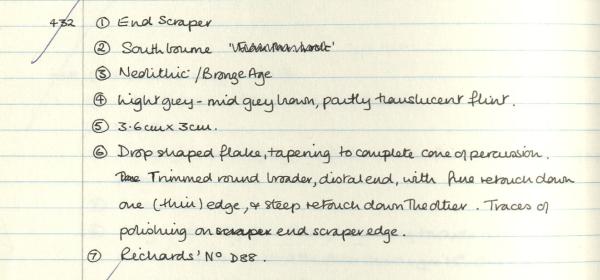 432 ① End Scraper
② Southbourne
③ Neolithic / Bronze Age
④ Light grey - mid grey brown, partly translucent flint.
⑤ 3.6cm x 3cm.
⑥ Drop shaped flake, tapering to complete cone of percussion.
Trimmed round broader, distal end, with fine retouch down
one (thin) edge, & steep retouch down the other. Traces of
polishing on scraper end scraper edge.
⑦ Richards' No D88.